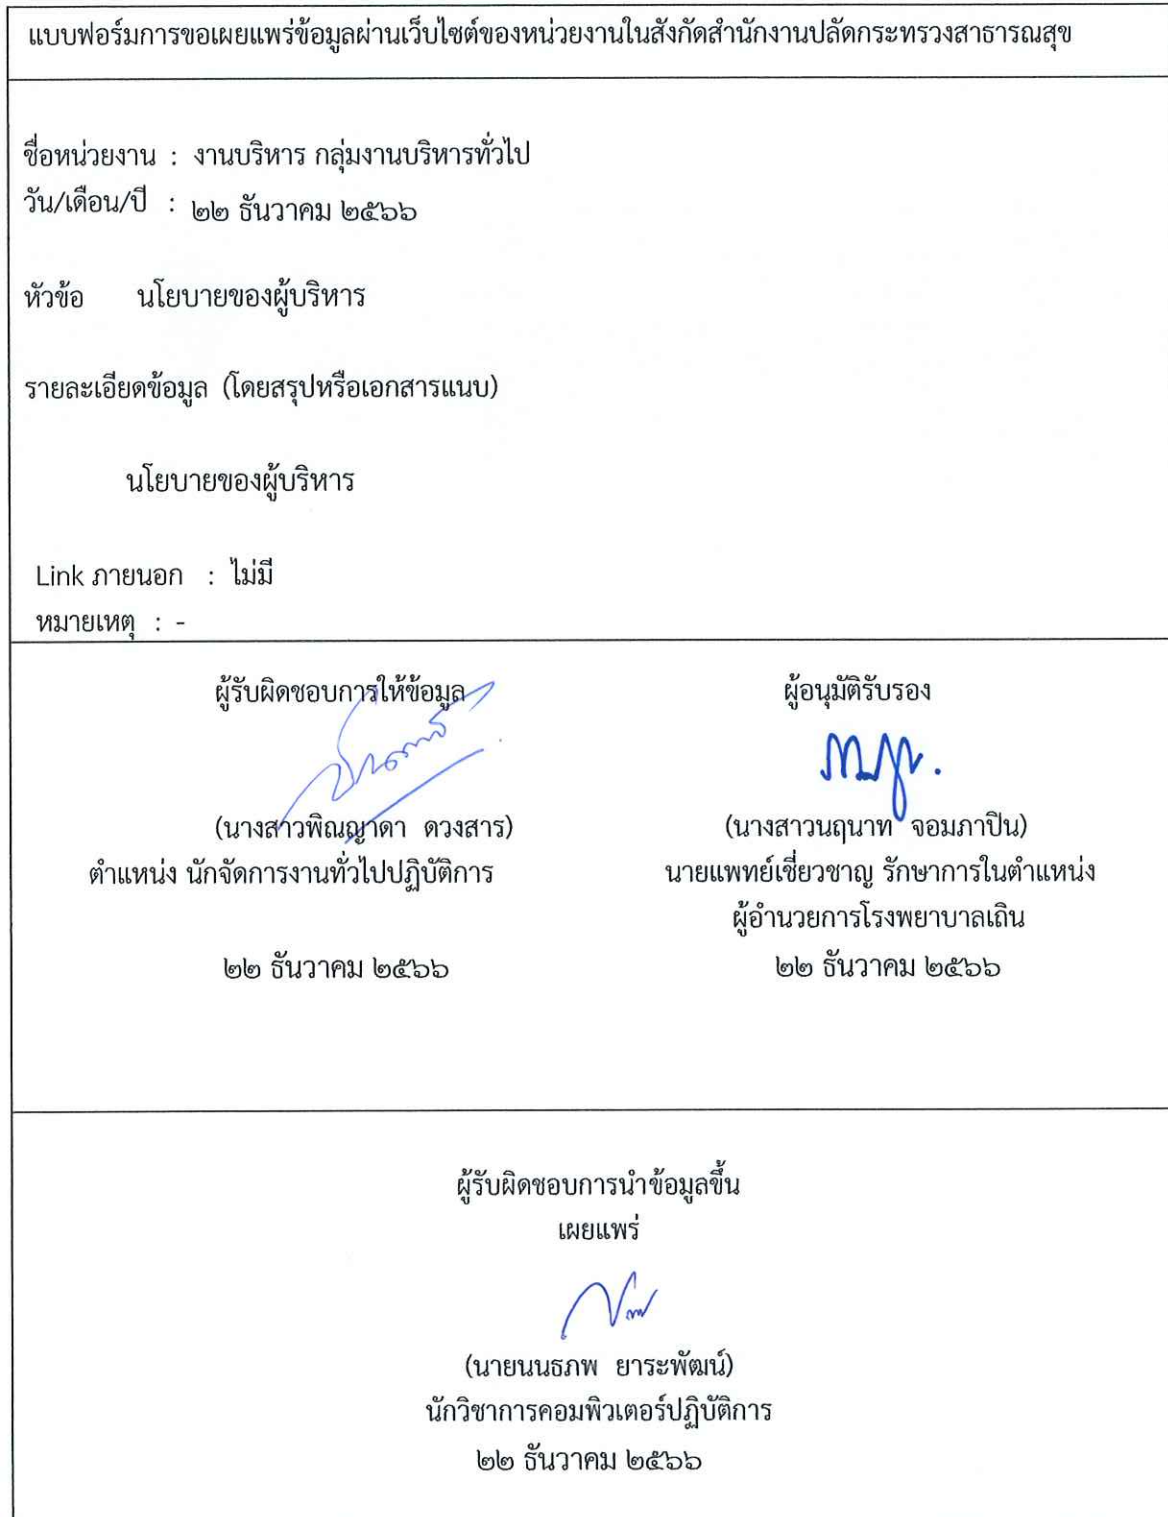 แบบฟอร์มการขอเผยแพร่ข้อมูลผ่านเว็บไซต์ของหน่วยงานในสังกัดสำนักงานปลัดกระทรวงสาธารณสุข
ชื่อหน่วยงาน : งานบริหาร กลุ่มงานบริหารทั่วไป
วัน/เดือน/ปี : ๒๒ ธันวาคม ๒๕๖๖
หัวข้อ นโยบายของผู้บริหาร
รายละเอียดข้อมูล (โดยสรุปหรือเอกสารแนบ)
นโยบายของผู้บริหาร
Link ภายนอก : ไม่มี
หมายเหตุ : -
ผู้รับผิดชอบการให้ข้อมูล
(นางสาวพิณญาดา ดวงสาร)
ตำแหน่ง นักจัดการงานทั่วไปปฏิบัติการ
๒๒ ธันวาคม ๒๕๖๖
ผู้อนุมัติรับรอง
(นางสาวนฤนาท จอมภาปิน)
นายแพทย์เชี่ยวชาญ รักษาการในตำแหน่ง
ผู้อำนวยการโรงพยาบาลเถิน
๒๒ ธันวาคม ๒๕๖๖
ผู้รับผิดชอบการนำข้อมูลขึ้น
เผยแพร่
(นายนนธภพ ยาระพัฒน์)
นักวิชาการคอมพิวเตอร์ปฏิบัติการ
๒๒ ธันวาคม ๒๕๖๖